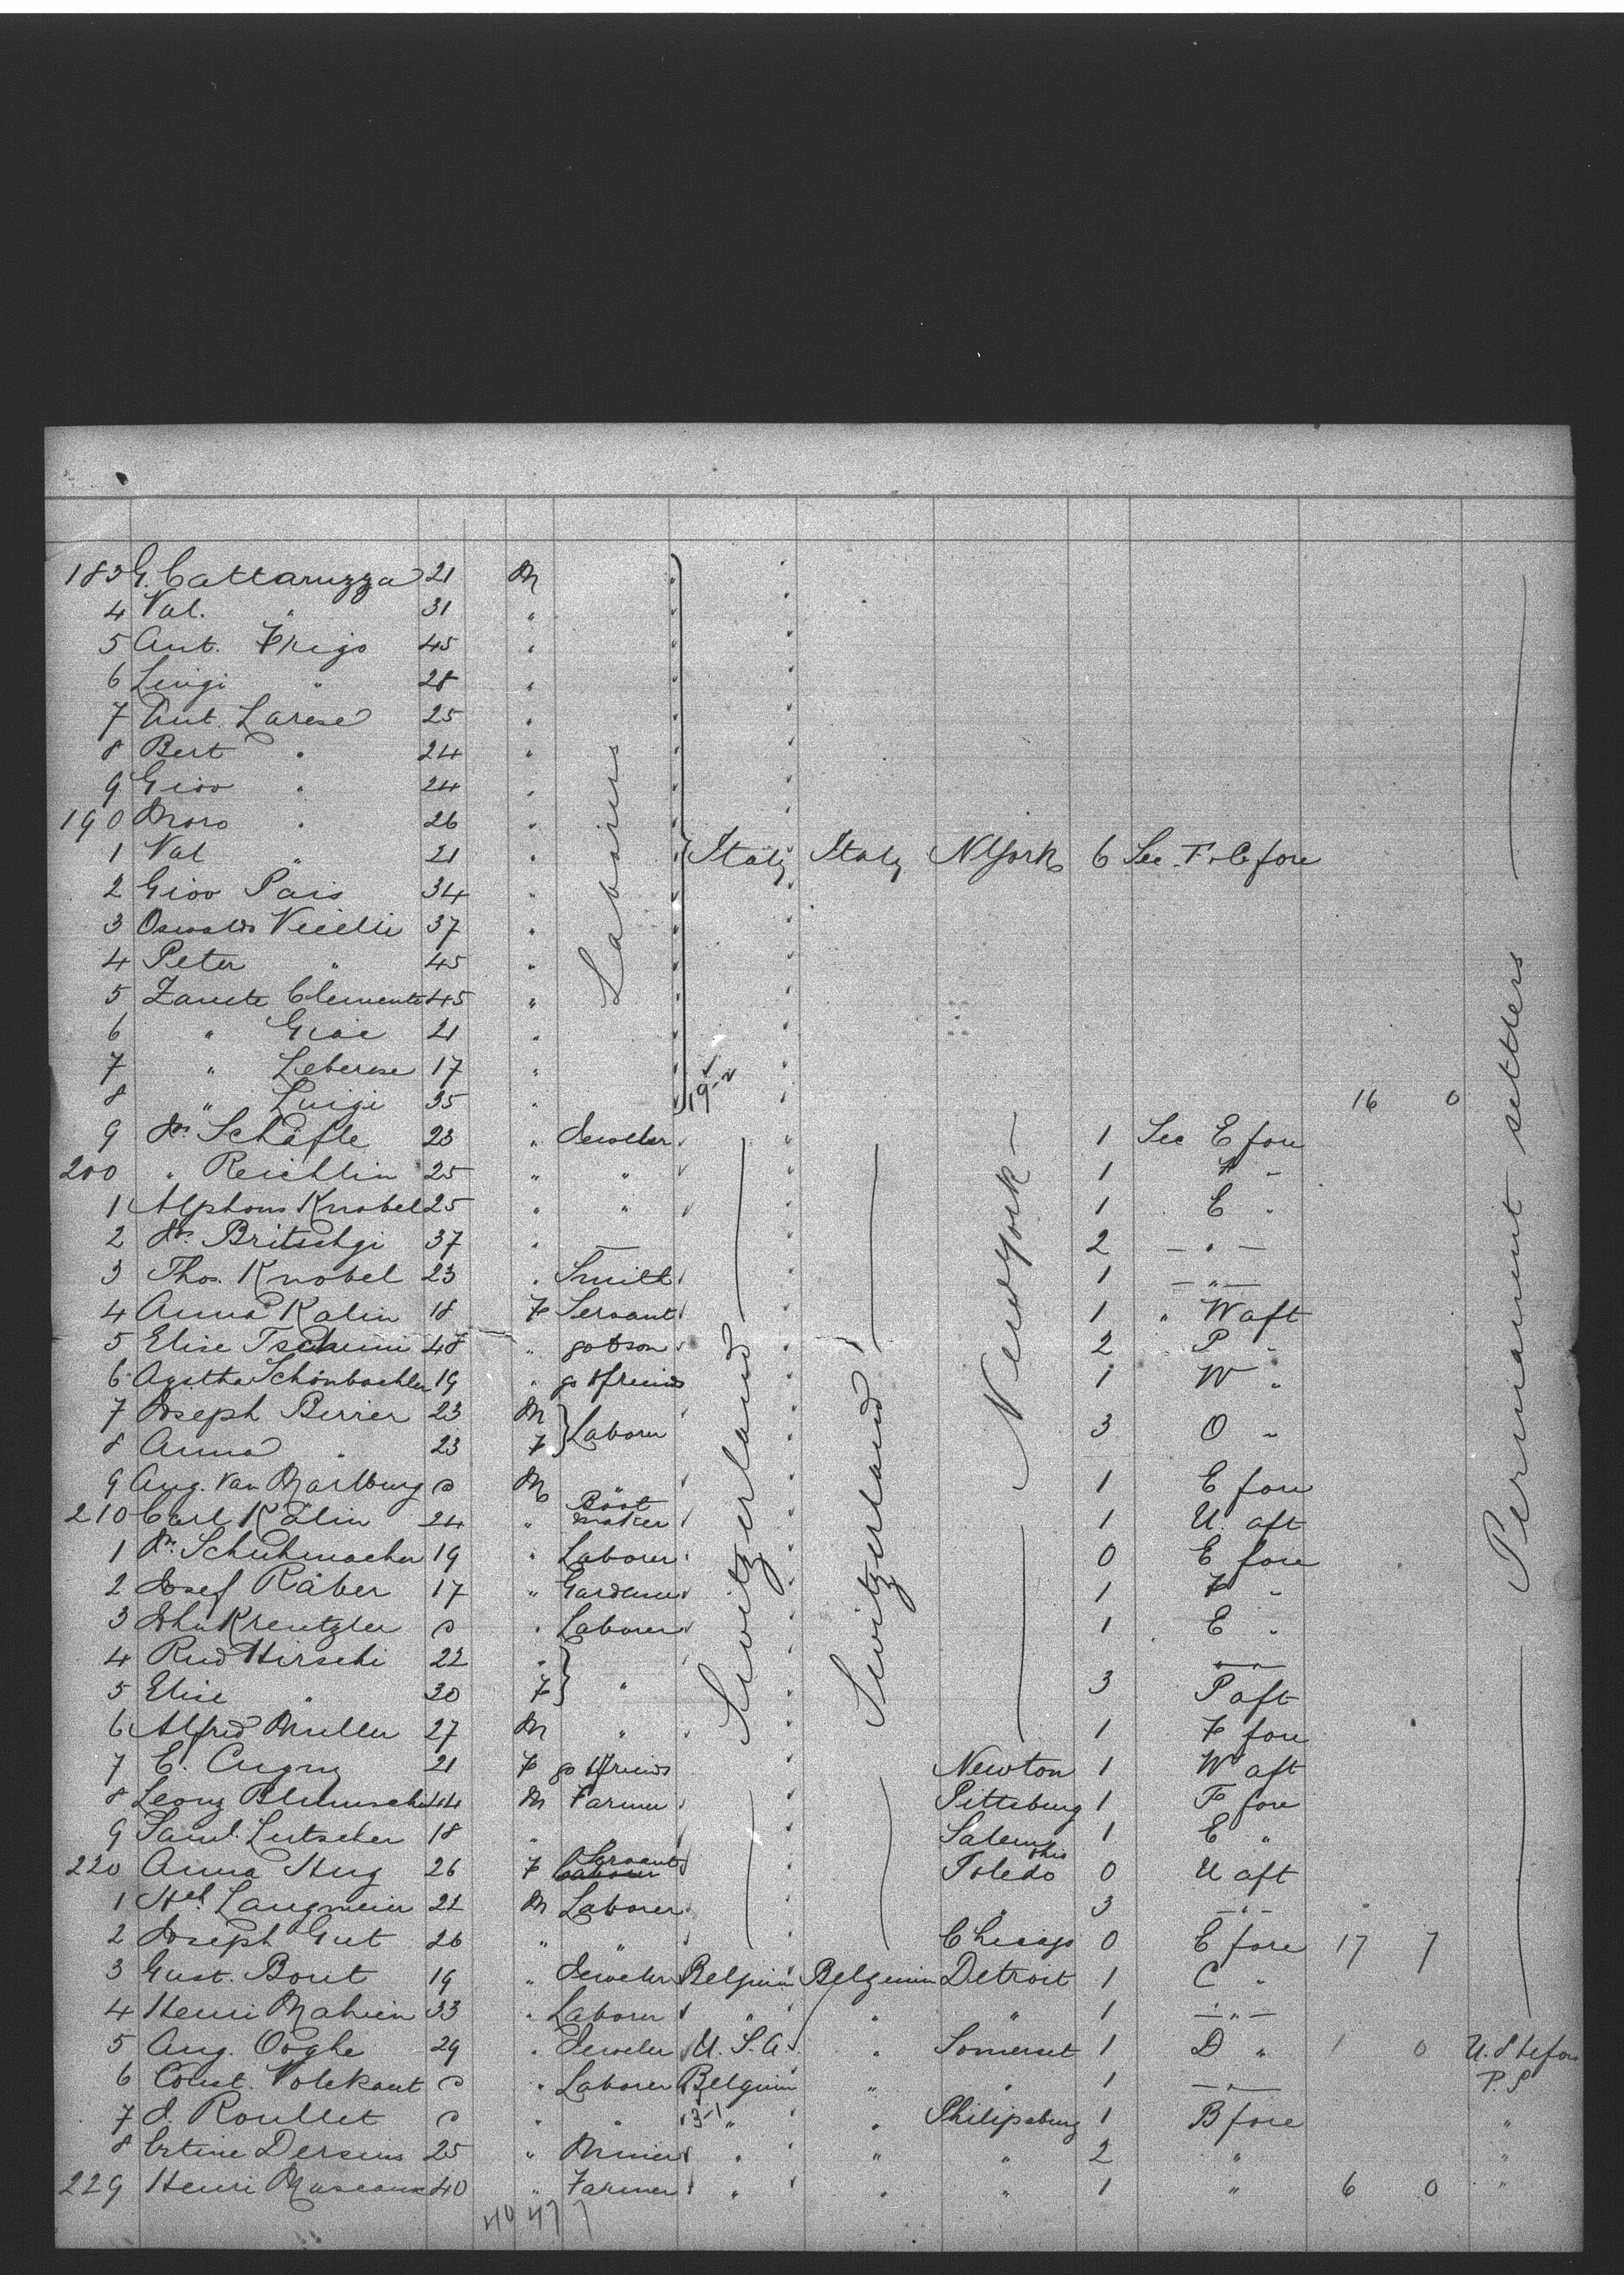 183 G. Cattaruzza 21 M
4 Val. " 31 "
5 Ant. Frigo 45 "
6 Luigi " 28 "
7 Ant. Larese 25 "
8 Bert " 24 "
9 Giov " 24 "
190 Moro " 26 "
1 Val " 21 " Laborers Italy Italy NYork 6 Sec. F & C fore
2 Giov Pais 34 "
3 Oswaldo Vecelli 37 "
4 Peter " 45 "
5 Zancte Clemente 45 "
6 " Giac 21 "
7 " Leberese 17 "
8 " Luigi 35 " 19-2 16 0
9 Js. Schäfle 23 " Jeweler Switzerland Switzerland New York 1 Sec E fore
200 " Reichlin 25 " " 1 "
1 Alphons Knobel 25 " " 1 E "
2 Js. Britschgi 37 " — 2 — " —
3 Thos. Knobel 23 " Smith 1 — " —
4 Anna Kalin 18 F Servant 1 " W aft
5 Elise Tschumi 48 " go t son 2 P "
6 Agatha Schönbachler 19 " go t friends 1 W "
7 Joseph Berrier 23 M Laborer 3 O "
8 Anna " 23 F
9 Aug. Van Marlburg M 1 E fore
210 Carl Kälin 24 " Boot maker 1 U. aft
1 Js. Schuhmacher 19 " Laborer 0 E fore
2 Josef Räber 17 " Gardener 1 F "
3 Kreutzler " Laborer 1 E "
4 Rud Hirschi 22 " " — " —
5 Elise " 30 F 3 P aft
6 Alfred Muller 27 M " 1 F fore
7 E. Cugny 21 F go t friends Newton 1 W aft
8 Leonz 44 M Farmer Pittsburg 1 F fore
9 Saml. Lutscher 18 " " Salem Ohio 1 E "
220 Anna Hug 26 F Servant Toledo 0 U aft
1 Langmeier 22 M Laborer " 3 — " —
2 Joseph Gut 26 " " Chicago 0 E fore 17 7
3 Gust. Bout 19 " Jeweler Belgium Belgium Detroit 1 C "
4 Henri Mahien 33 " Laborer " " " 1 — " —
5 Aug. Ooghe 29 " Jeweler U.S.A. " Somerset 1 D " 1 0
6 Const. Volckaut " Laborer Belgium " " 1 — " — P.S
7 J. Roullet " " 13-1 " " Philipsburg 1 B fore "
8 Dersins 25 " Miner " " " 2 " "
229 Henri 40 " Farmer " " " 1 " 6 0 "
Permanent settlers
40 47 7